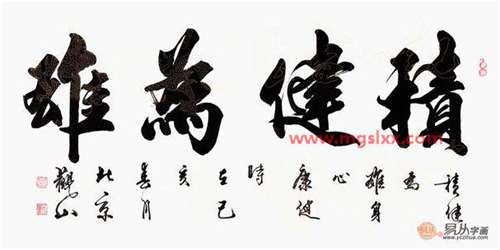 積健為雄
積健
為
雄身
心
康健
時
在己
亥
春月
北京
www.mgslxx.com
易从字画
www.yczihua.com